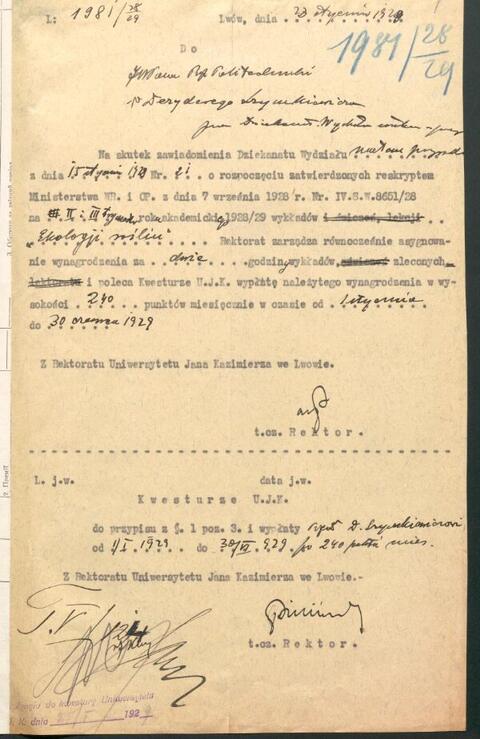 L: 1981/28/29 Lwów, dnia 23 stycznia 1929
1981/28/29
Do
JWPana Prof. Politechniki
Dezyderego Szymkiewicza
Na skutek zawiadomienia Dziekanatu Wydziału matem. przyrod.
z dnia 15 stycznia 1929 Nr. 21. o rozpoczęciu zatwierdzonych reskryptem
Ministerstwa WR. i OP. z dnia 7 września 1928 r. Nr. IV.S.W.8651/28
na II. i III trym. roku akademickiego 1928/29 wykładów i ćwiczeń, lekcji
"Ekologji roślin" Rektorat zarządza równocześnie asygnowa-
nie wynagrodzenia za dwie godziny wykładów, ćwiczeń zleconych
lektoratu i poleca Kwesturze U.J.K. wypłatę należytego wynagrodzenia w wy-
sokości 240 punktów miesięcznie w czasie od 1 stycznia
do 30 czerwca 1929
Z Rektoratu Uniwerzytetu Jana Kazimierza we Lwowie.
t.cz. Rektor.
L. j.w. data j.w.
Kwesturze U.J.K.
do przypisu z §. 1 poz. 3. i wypłaty D. Szymkiewiczowi
od 1/I 1929 do 30/VI 929 po 240 mies.
Z Rektoratu Uniwerzytetu Jana Kazimierza we Lwowie.-
t.cz. Rektor.
do Kwestury Uniwersytetu
J. K. dnia 192